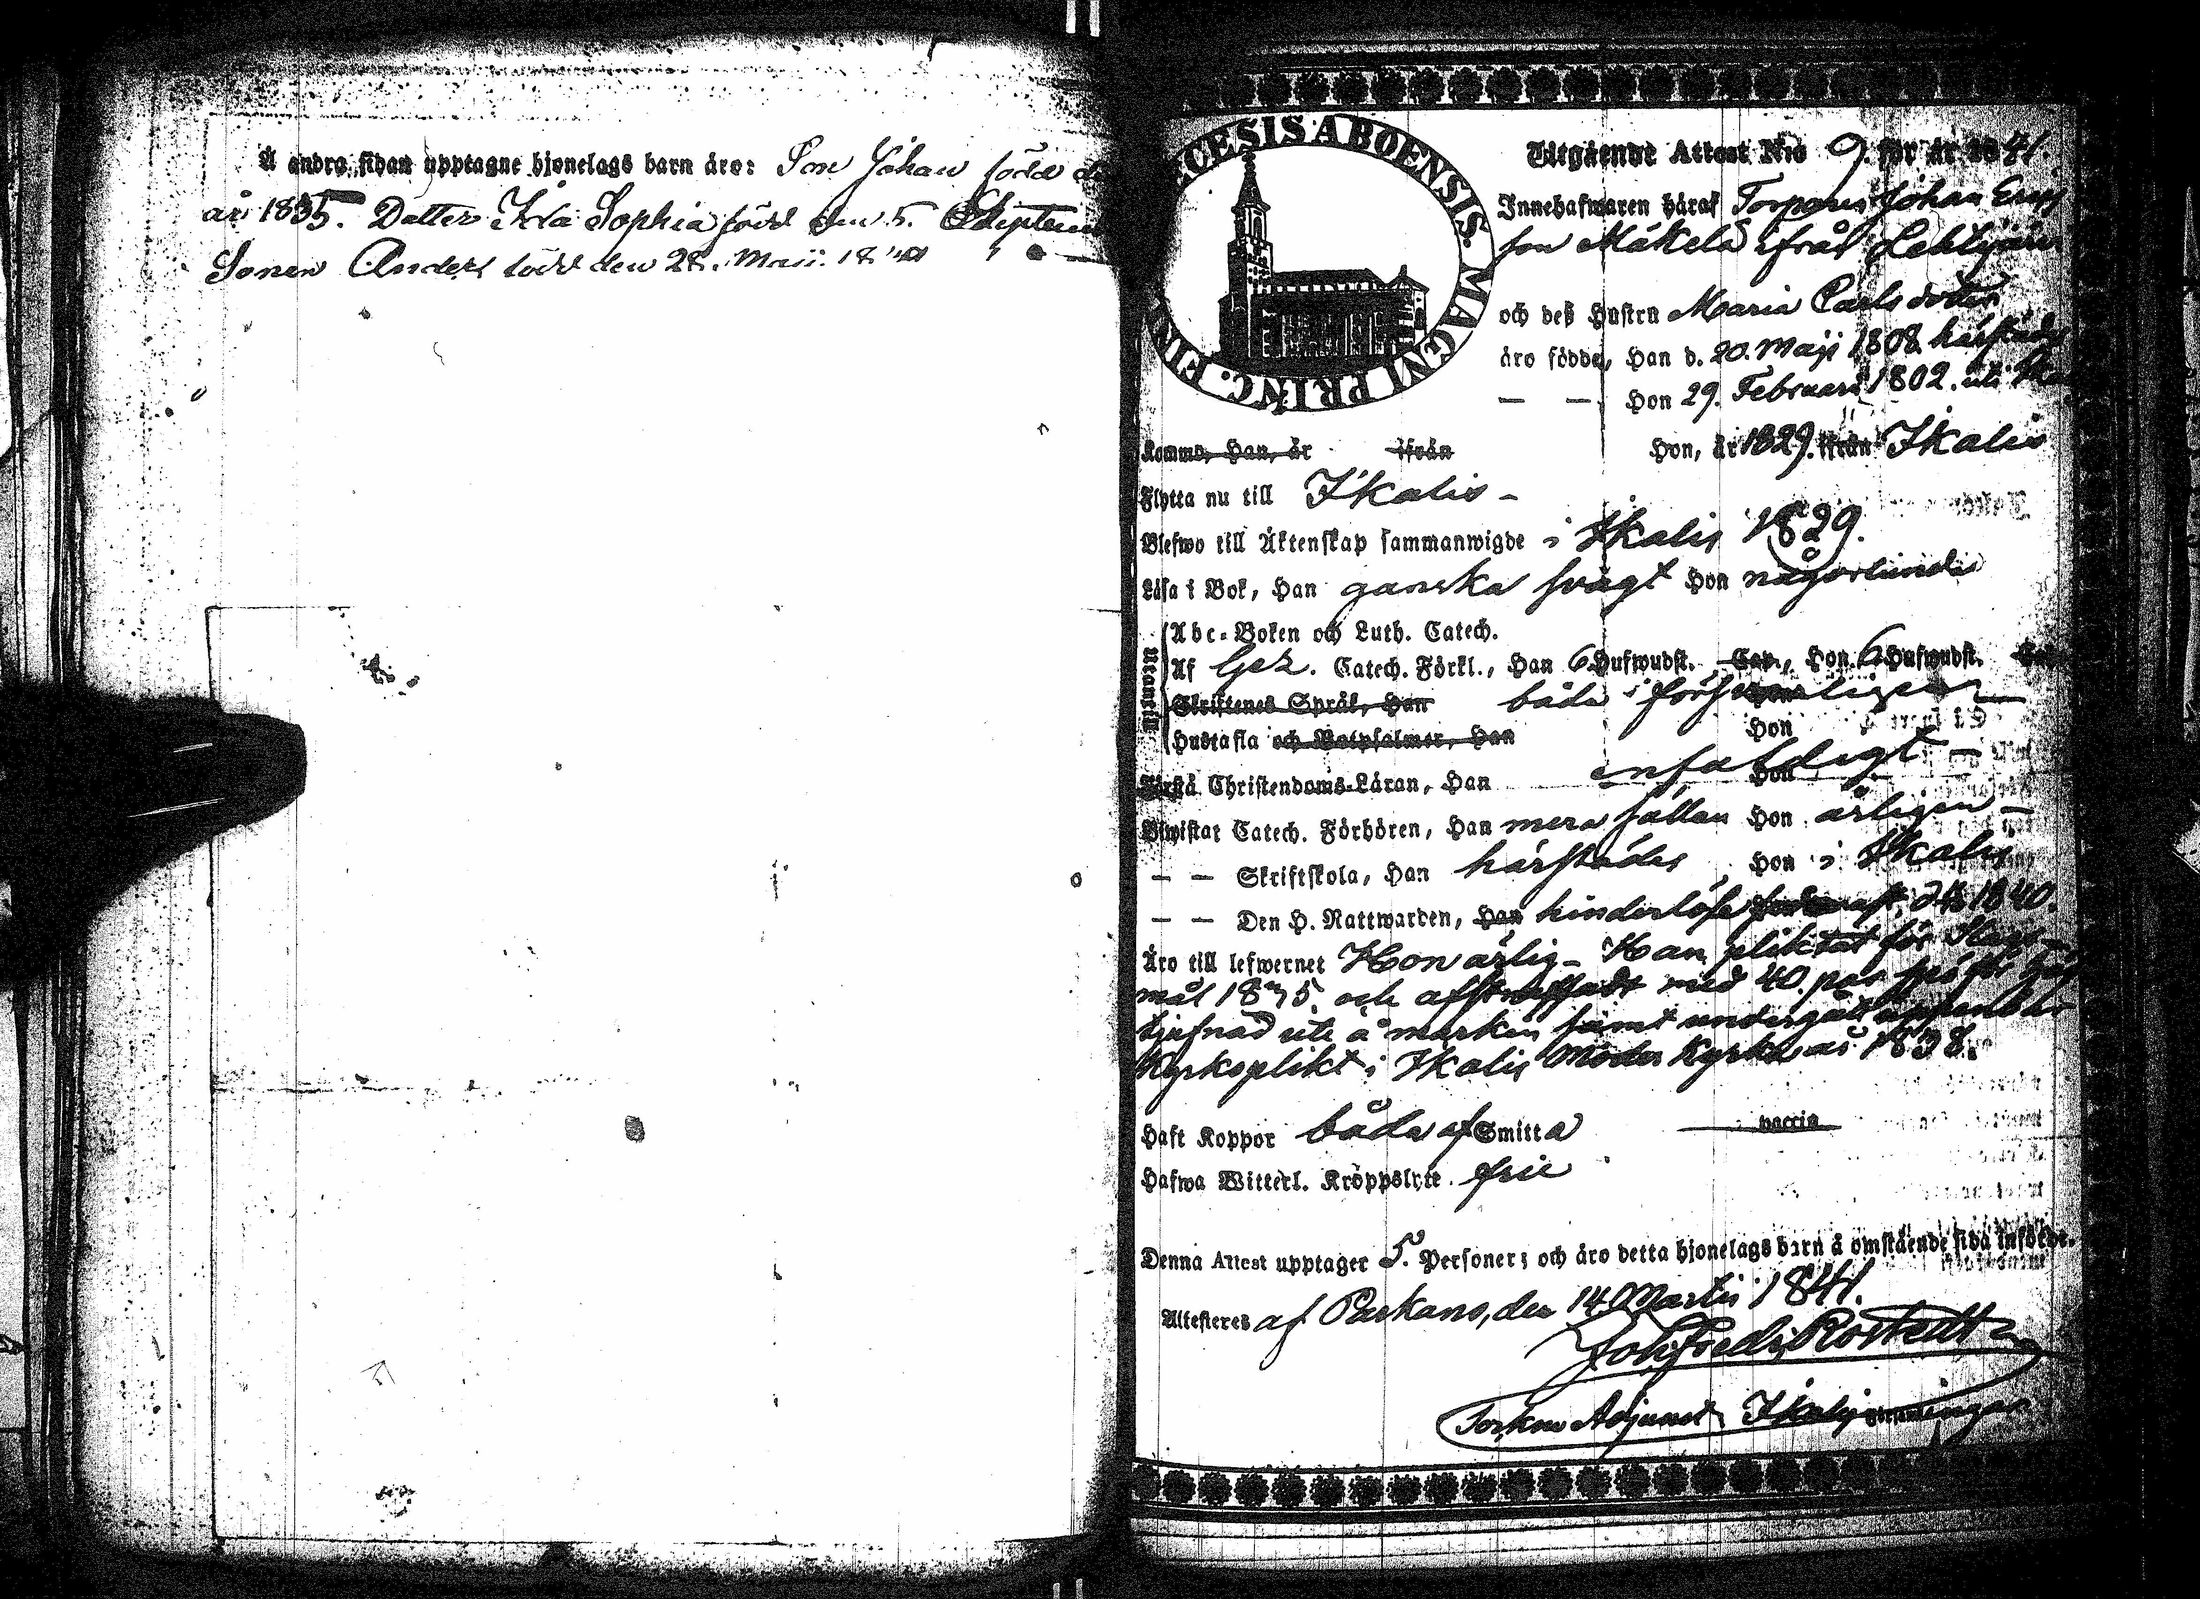 Å andra sidan upptagne hjonelags barn äro: Son Johan född
år 1835. Dotter Sophia född den 5.
Sonen Anders född den 28. Maji 18
DIOECESIS ABOENSIS. MAGNI PRINC. FIN
Utgående Attest N:o 9. för år 1841.
Innehafwaren häraf Torparen Johan Erics
son Mäkelä ifrån
och deß Hustru Maria Carls dotter
äro födde, Han d. 20. Maji 1808 härstädes
— — Hon 29. Februari 1802. uti
Kommo, Han, år ifrån Hon, år 1829. ifrån Ikalis
Flytta nu till Ikalis –
Blefwo till Äktenskap sammanwigde i Ikalis 1829.
Läsa i Bok, Han ganska svagt Hon någorlunda
Utantill
Abc-Boken och Luth. Catech.
Af Gez. Catech. Förkl., Han 6 Hufwudst. Cap., Hon 6 Hufwudst.
Skriftenes Språk, Han båda Hon
Hustafla och Botpsalmer, Han Hon
Förstå Christendoms-Läran, Han enfaldigt – Hon
Biwistat Catech. Förhören, Han mera sällan Hon årligen –
— — Skriftskola, Han härstädes Hon i Ikalis
— — Den H. Nattwarden, Han hinderlöse 1840.
Äro till lefwernet Hon ärlig – Han pliktat för
mål 1835 och afstraffadt med 40. par spö för
tjufnad ute å marken samt undergått uppenbar
Kyrkoplikt i Ikalis Moder Kyrka år 1838.
Haft Koppor båda af Smitta vaccin
Hafwa Witterl. Kröppslyte frie
Denna Attest upptager 5. Personer; och äro detta hjonelags barn å omstående sida införde.
Attesteres af Parkano, den 14 Martii 1841.
Joh. Fredr. Rostedt
Adjunct